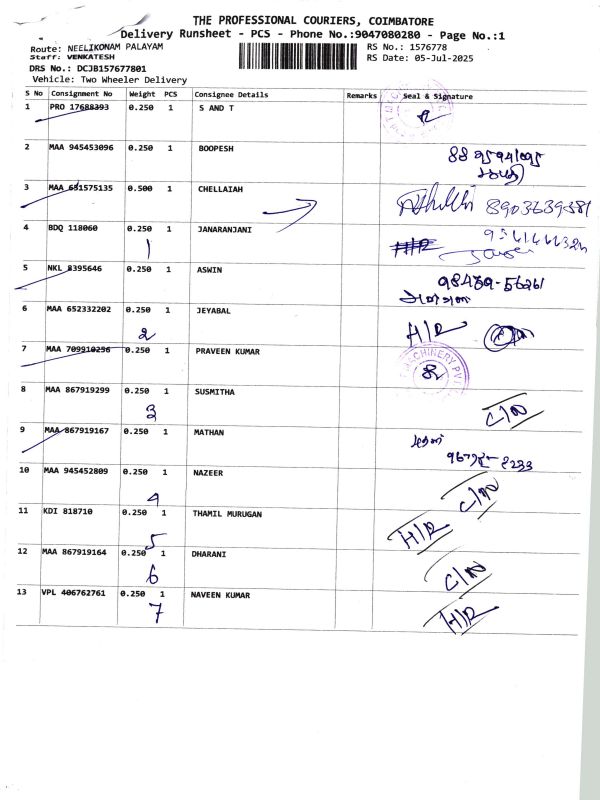 THE PROFESSIONAL COURIERS, COIMBATORE
Delivery Runsheet - PCS - Phone No.:9047080280 - Page No.:1
Route: NEELIKONAM PALAYAM RS No.: 1576778
Staff: VENKATESH RS Date: 05-Jul-2025
DRS No.: DCJB157677801
Vehicle: Two Wheeler Delivery
S No Consignment No Weight PCS Consignee Details Remarks Seal & Signature
1 PRO 17688393 0.250 1 S AND T
2 MAA 945453096 0.250 1 BOOPESH
3 MAA 651575135 0.500 1 CHELLAIAH 8903639381
4 BDQ 118060 0.250 1 JANARANJANI
1
5 NKL 8395646 0.250 1 ASWIN
6 MAA 652332202 0.250 1 JEYABAL H/R
2
7 MAA 709910256 0.250 1 PRAVEEN KUMAR MACHINERY PVT
8 MAA 867919299 0.250 1 SUSMITHA C/N
3
9 MAA 867919167 0.250 1 MATHAN
10 MAA 945452809 0.250 1 NAZEER C/N
4
11 KDI 818710 0.250 1 THAMIL MURUGAN H/R
5
12 MAA 867919164 0.250 1 DHARANI C/N
6
13 VPL 406762761 0.250 1 NAVEEN KUMAR H/R
7